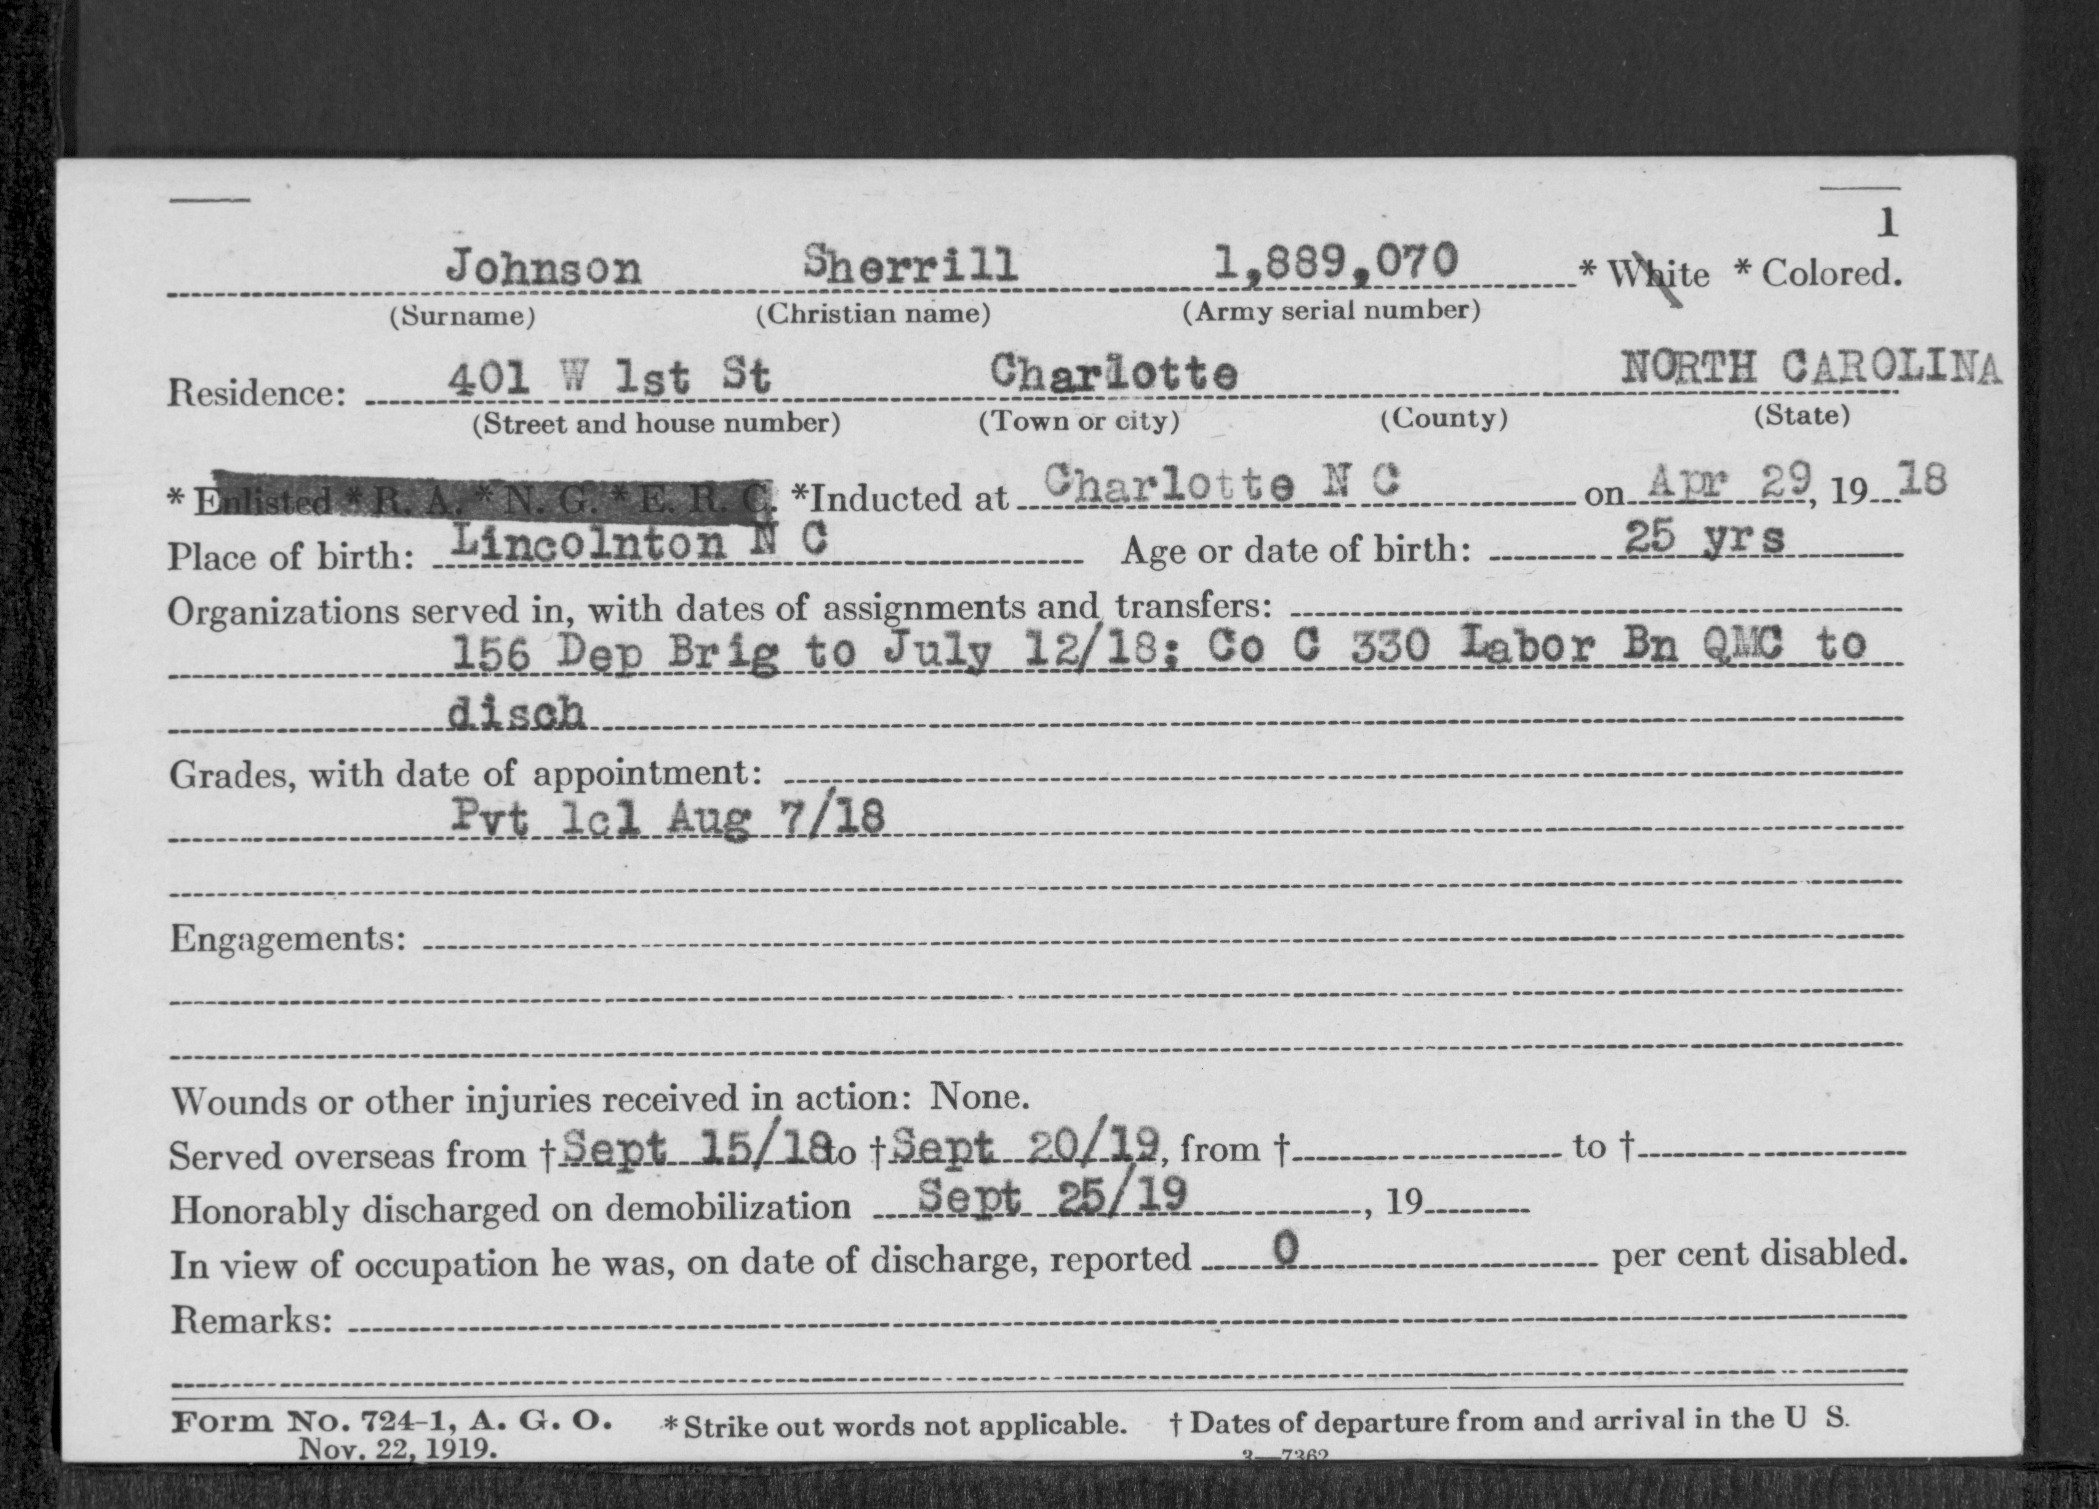 1
Johnson Sherrill 1,889,070 * White * Colored.
(Surname) (Christian name) (Army serial number)
Residence: 401 W 1st St Charlotte NORTH CAROLINA
(Street and house number) (Town or city) (County) (State)
* Enlisted * R. A. * N. G. * E. R. C. *Inducted at Charlotte N C on Apr 29, 19 18
Place of birth: Lincolnton N C Age or date of birth: 25 yrs
Organizations served in, with dates of assignments and transfers:
156 Dep Brig to July 12/18; Co C 330 Labor Bn QMC to
disch
Grades, with date of appointment:
Pvt 1cl Aug 7/18
Engagements:
Wounds or other injuries received in action: None.
Served overseas from † Sept 15/18 to † Sept 20/19, from † to †
Honorably discharged on demobilization Sept 25/19, 19
In view of occupation he was, on date of discharge, reported 0 per cent disabled.
Remarks:
Form No. 724-1, A. G. O. * Strike out words not applicable. † Dates of departure from and arrival in the U S.
Nov. 22, 1919. 3—7362